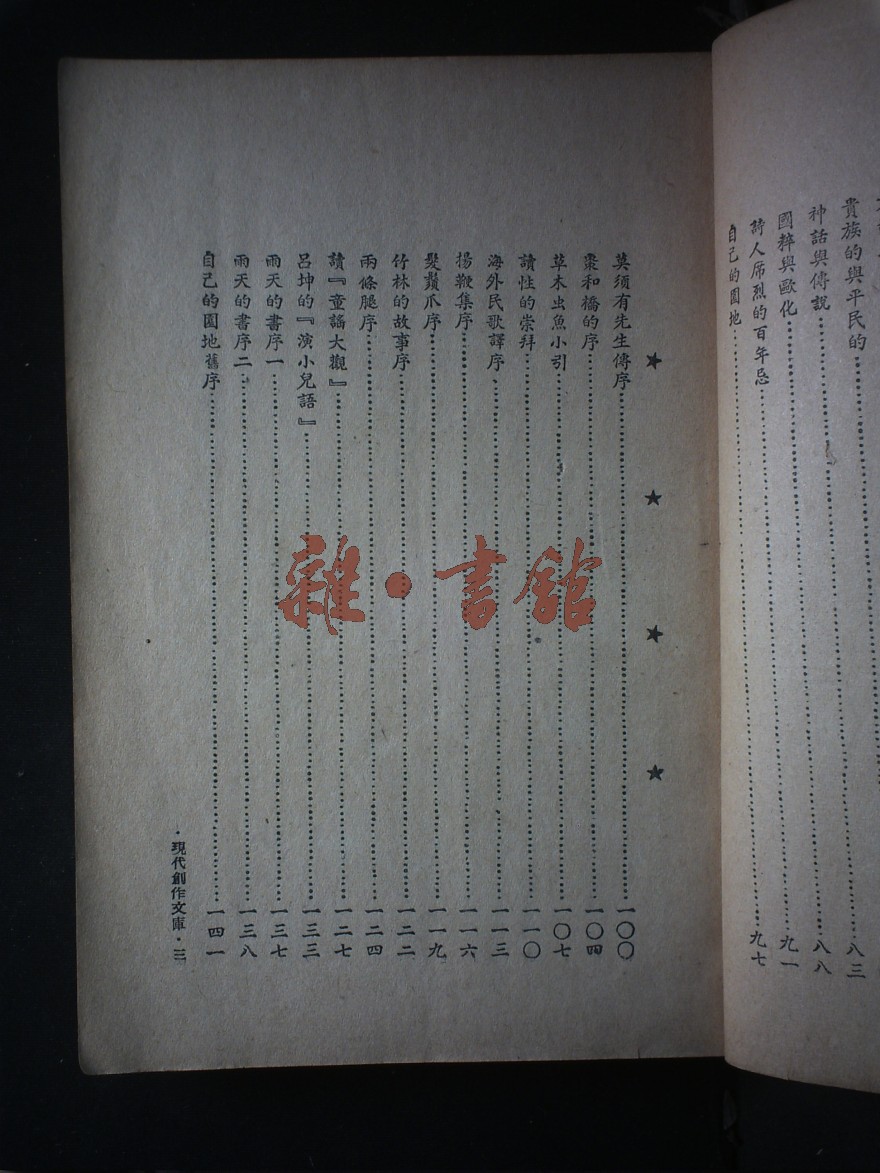 貴族的與平民的……八三
神話與傳說……八八
國粹與歐化……九一
詩人席烈的百年忌……九七
自己的園地……
★ ★ ★ ★
莫須有先生傳序……一〇〇
棗和橋的序……一〇四
草木虫魚小引……一〇七
讀性的崇拜……一一〇
海外民歌譯序……一一三
揚鞭集序……一一六
髮鬚爪序……一一九
竹林的故事序……一二二
兩條腿序……一二四
讀『童謠大觀』……一二七
呂坤的『演小兒語』……一三三
雨天的書序一……一三七
雨天的書序二……一三八
自己的園地舊序……一四一
·現代創作文庫·三
雜·書館